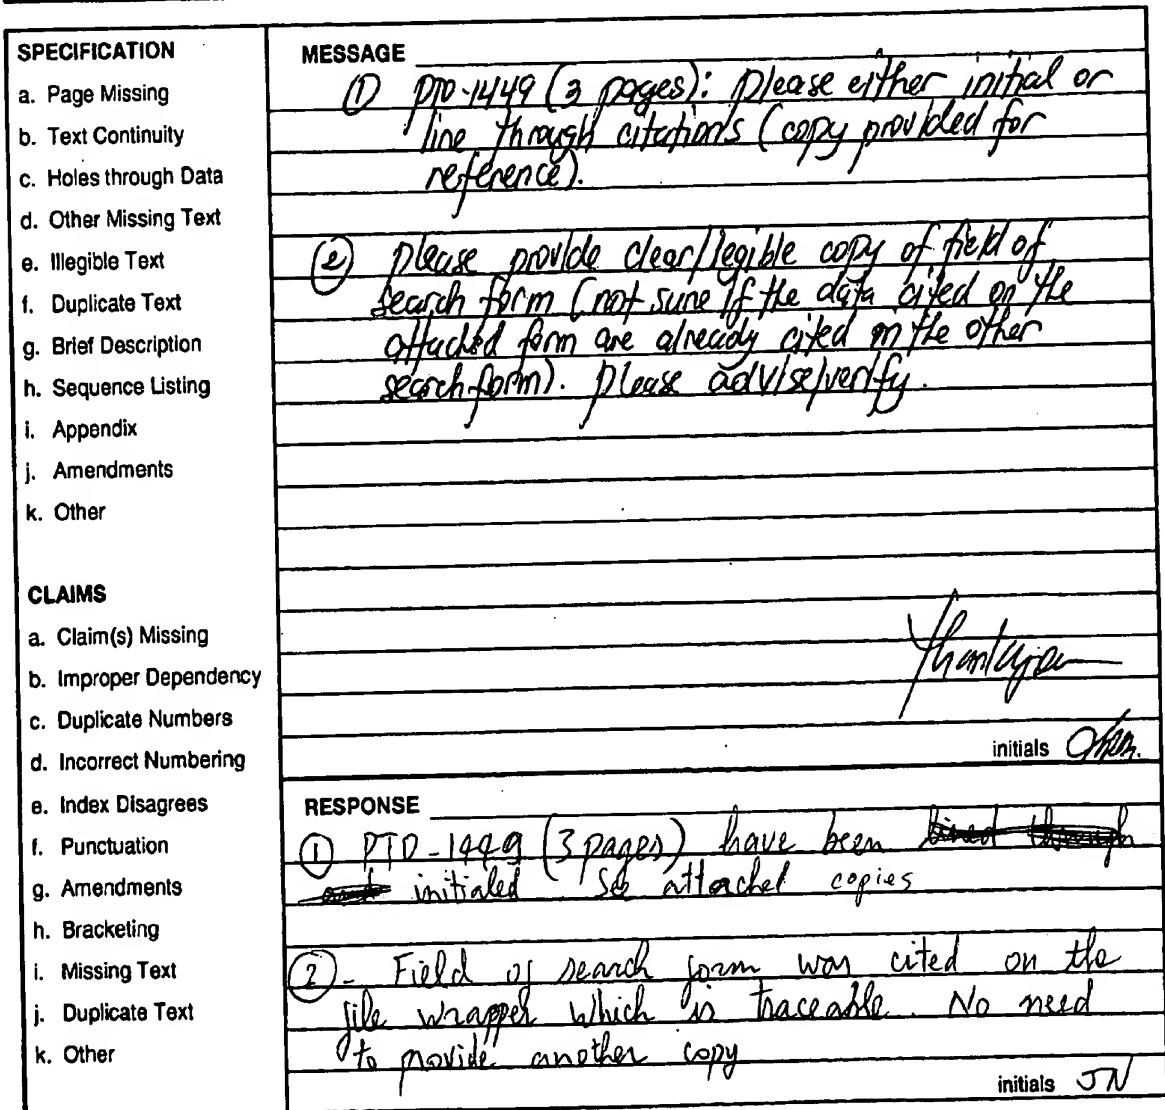 SPECIFICATION
a. Page Missing
b. Text Continuity
c. Holes through Data
d. Other Missing Text
e. Illegible Text
f. Duplicate Text
g. Brief Description
h. Sequence Listing
i. Appendix
j. Amendments
k. Other
CLAIMS
a. Claim(s) Missing
b. Improper Dependency
c. Duplicate Numbers
d. Incorrect Numbering
e. Index Disagrees
f. Punctuation
g. Amendments
h. Bracketing
i. Missing Text
j. Duplicate Text
k. Other
MESSAGE
① PTO-1449 (3 pages): Please either initial or
line through citations (copy provided for
reference).
② Please provide clear/legible copy of field of
search form (not sure if the data cited on the
attached form are already cited on the other
search form). Please advise/verify.
Thank you
initials
RESPONSE
① PTO-1449 (3 pages) have been lined through
initialed See attached copies
② - Field of search form was cited on the
file wrapper which is traceable. No need
to provide another copy
initials JN